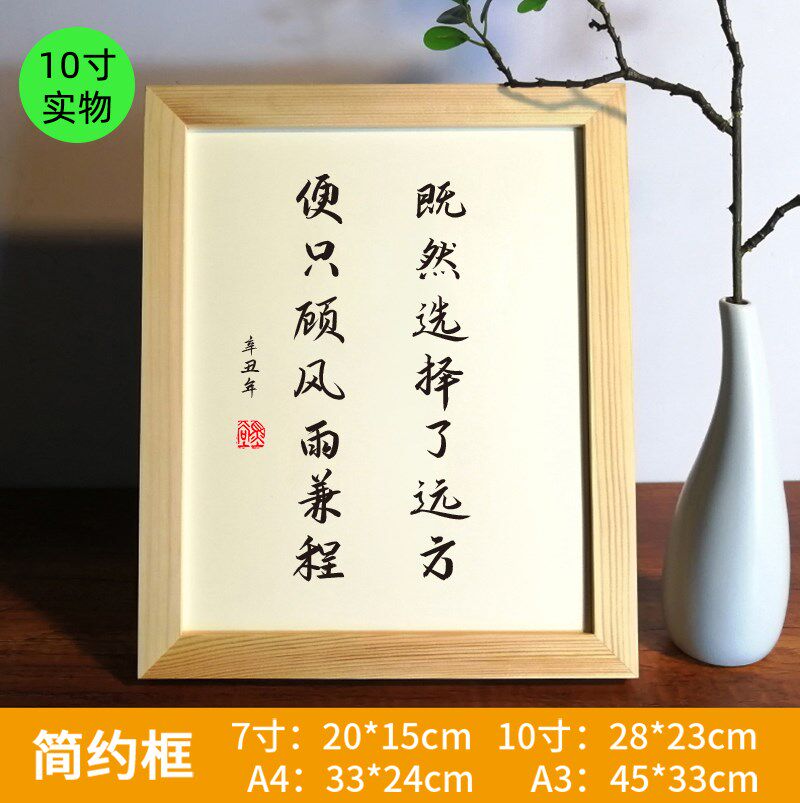 10寸
实物
既然选择了远方
便只顾风雨兼程
辛丑年
简约框
7寸：20*15cm 10寸：28*23cm
A4：33*24cm A3：45*33cm